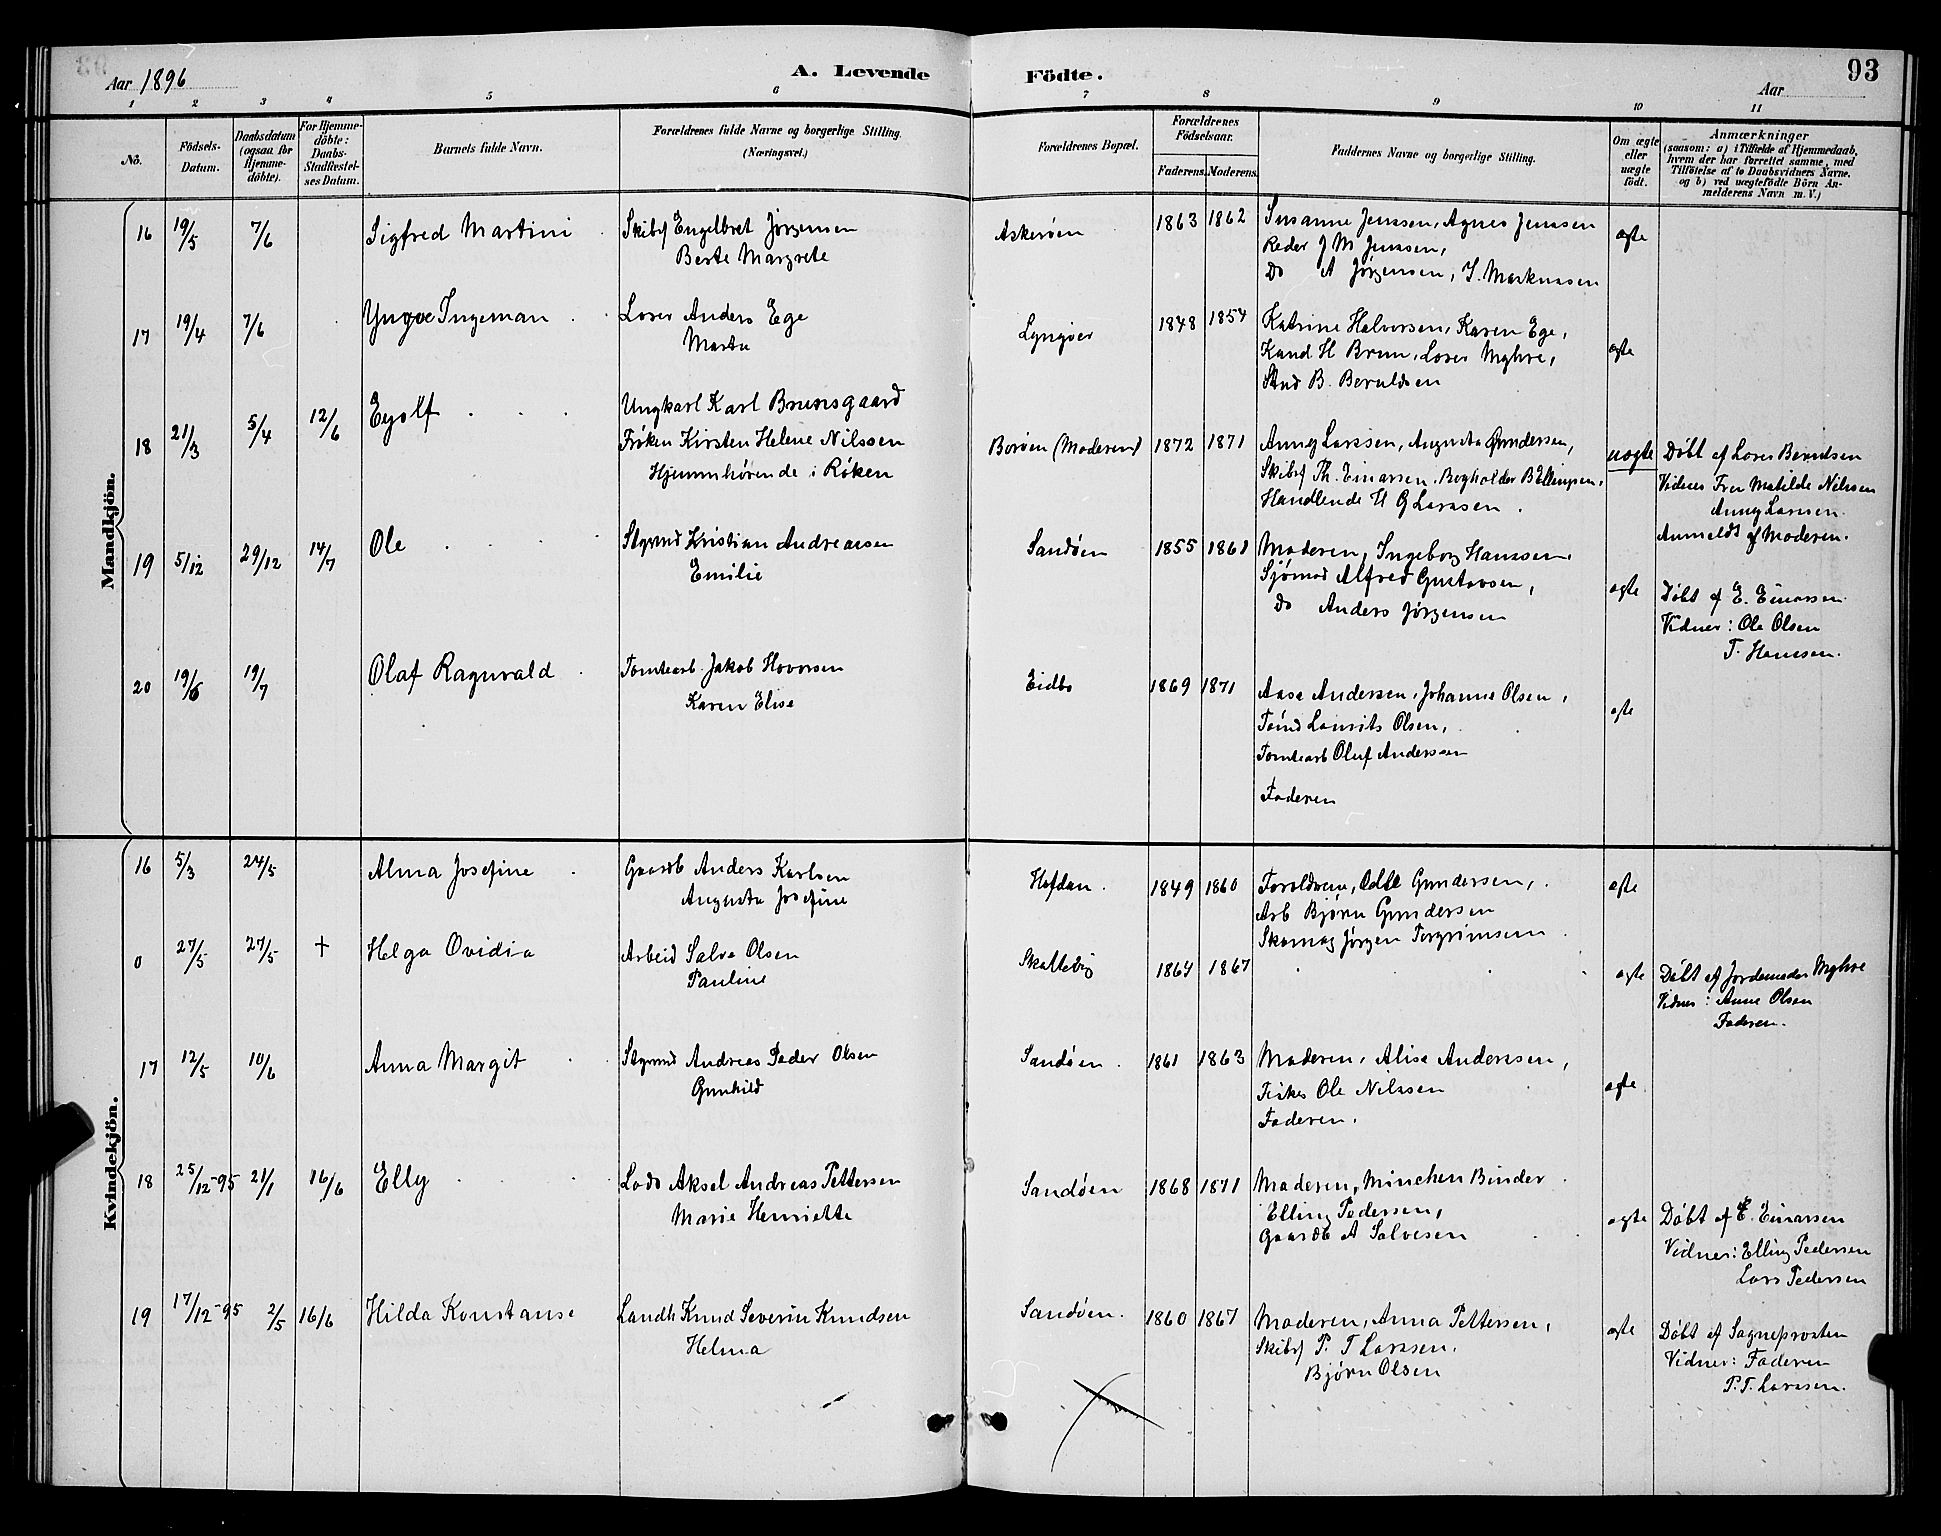 Aar 1896
A. Levende
Födte.
Aar
93
1 2 3 4 5 6 7 8 9 10 11
Nô.
Födsels-
Datum.
Daabsdatum
(ogsaa for
Hjemme-
döbte).
For Hjemme-
döbte:
Daabs-
Stadfæstel-
ses Datum.
Barnets fulde Navn.
Forældrenes fulde Navne og borgerlige Stilling.
(Næringsvei.)
Forældrenes Bopæl.
Forældrenes
Födselsaar.
Faderens. Moderens.
Faddernes Navne og borgerlige Stilling.
Om ægte
eller
uægte
födt.
Anmærkninger
(saasom: a) i Tilfælde af Hjemmedaab,
hvem der har forrettet samme, med
Tilföielse af to Daabsvidners Navne,
og b) ved uægtefödte Börn An-
melderens Navn m. V.)
Mandkjön.
16 19/5 7/6 Sigfred Martini
Skibsf Engelbret Jørgensen
Berte Margrete
Askerøen 1863 1862
Susanne Jenssen, Agnes Jenssen
Reder J M Jenssen,
Do A Jørgensen, I. Markussen
ægte
17 19/4 7/6 Yngve Ingeman
Loser Anders Ege
Marta
Lyngøer 1848 1854
Katrine Halvorsen, Karen Ege,
Kand H Brun, Loser Myhre,
Stud B. Beruldsen
ægte
18 21/3 5/4 12/6 Eyolf
Ungkarl Karl Brunsgaard
Frøken Kirsten Helene Nilssen
Hjemmhørende i Røken
Borøen (Moderen) 1872 1871
Anny Larssen, Augusta Gundersen,
Skibsf Th. Einarsen, Bogholder B Ellingsen,
Handlende H G Larssen.
uægte
Døbt af Loser Berntsen
Vidner Fru Matilde Nilssen
Anny Larssen.
Anmeldt af Moderen.
19 5/12 29/12 14/7 Ole
Styrmd Kristian Andreassen
Emilie
Sandøen 1855 1861
Moderen, Ingeborg Hanssen,
Sjømad Alfred Gustavsen,
Do Anders Jørgensen
ægte
Døbt af E. Einarssen
Vidner: Ole Olsen
T. Hanssen.
20 19/6 19/7 Olaf Ragnvald
Tomtearb Jakob Hovorsen
Karen Elise
Eidbo 1869 1871
Aase Andersen, Johanne Olsen,
Tømd Laurits Olsen,
Tomtearb Oluf Andersen
Faderen
ægte
Kvindekjön.
16 5/3 24/5 Alma Josefine
Gaardb Anders Karlsen
Augusta Josefine
Hofdan. 1849 1860
Forældrene, Odte Gundersen,
Arb Bjørn Gundersen
Skomag Jørgen Torgrimsen
ægte
0 27/5 27/5 † Helga Ovidia
Arbeid Salve Olsen
Pauline
Skottevig 1864 1867
ægte
Døbt af Jordemoder Myhre
Vidner: Anne Olsen
Faderen.
17 12/5 10/6 Anna Margit
Styrmd Andreas Peder Olsen
Gunhild
Sandøen. 1861 1863
Moderen, Alise Anderssen,
Fisker Ole Nilssen
Faderen.
ægte
18 25/12-95 21/1 16/6 Elly
Lods Aksel Andreas Pettersen
Marie Henriette
Sandøen 1868 1871
Moderen, Minchen Binder
Elling Pedersen,
Gaardb A Salvesen
ægte
Døbt af E. Einarsen
Vidner: Elling Pedersen
Lars Pedersen
19 17/12-95 2/5 16/6 Hilda Konstanse
Landh Knud Severin Knudsen
Helma
Sandøen. 1860 1867
Moderen, Anna Pettersen,
Skibsf P. T Larssen.
Bjørn Olsen
ægte
Døbt af Sogneprosten
Vidner: Faderen
P. T. Larssen.